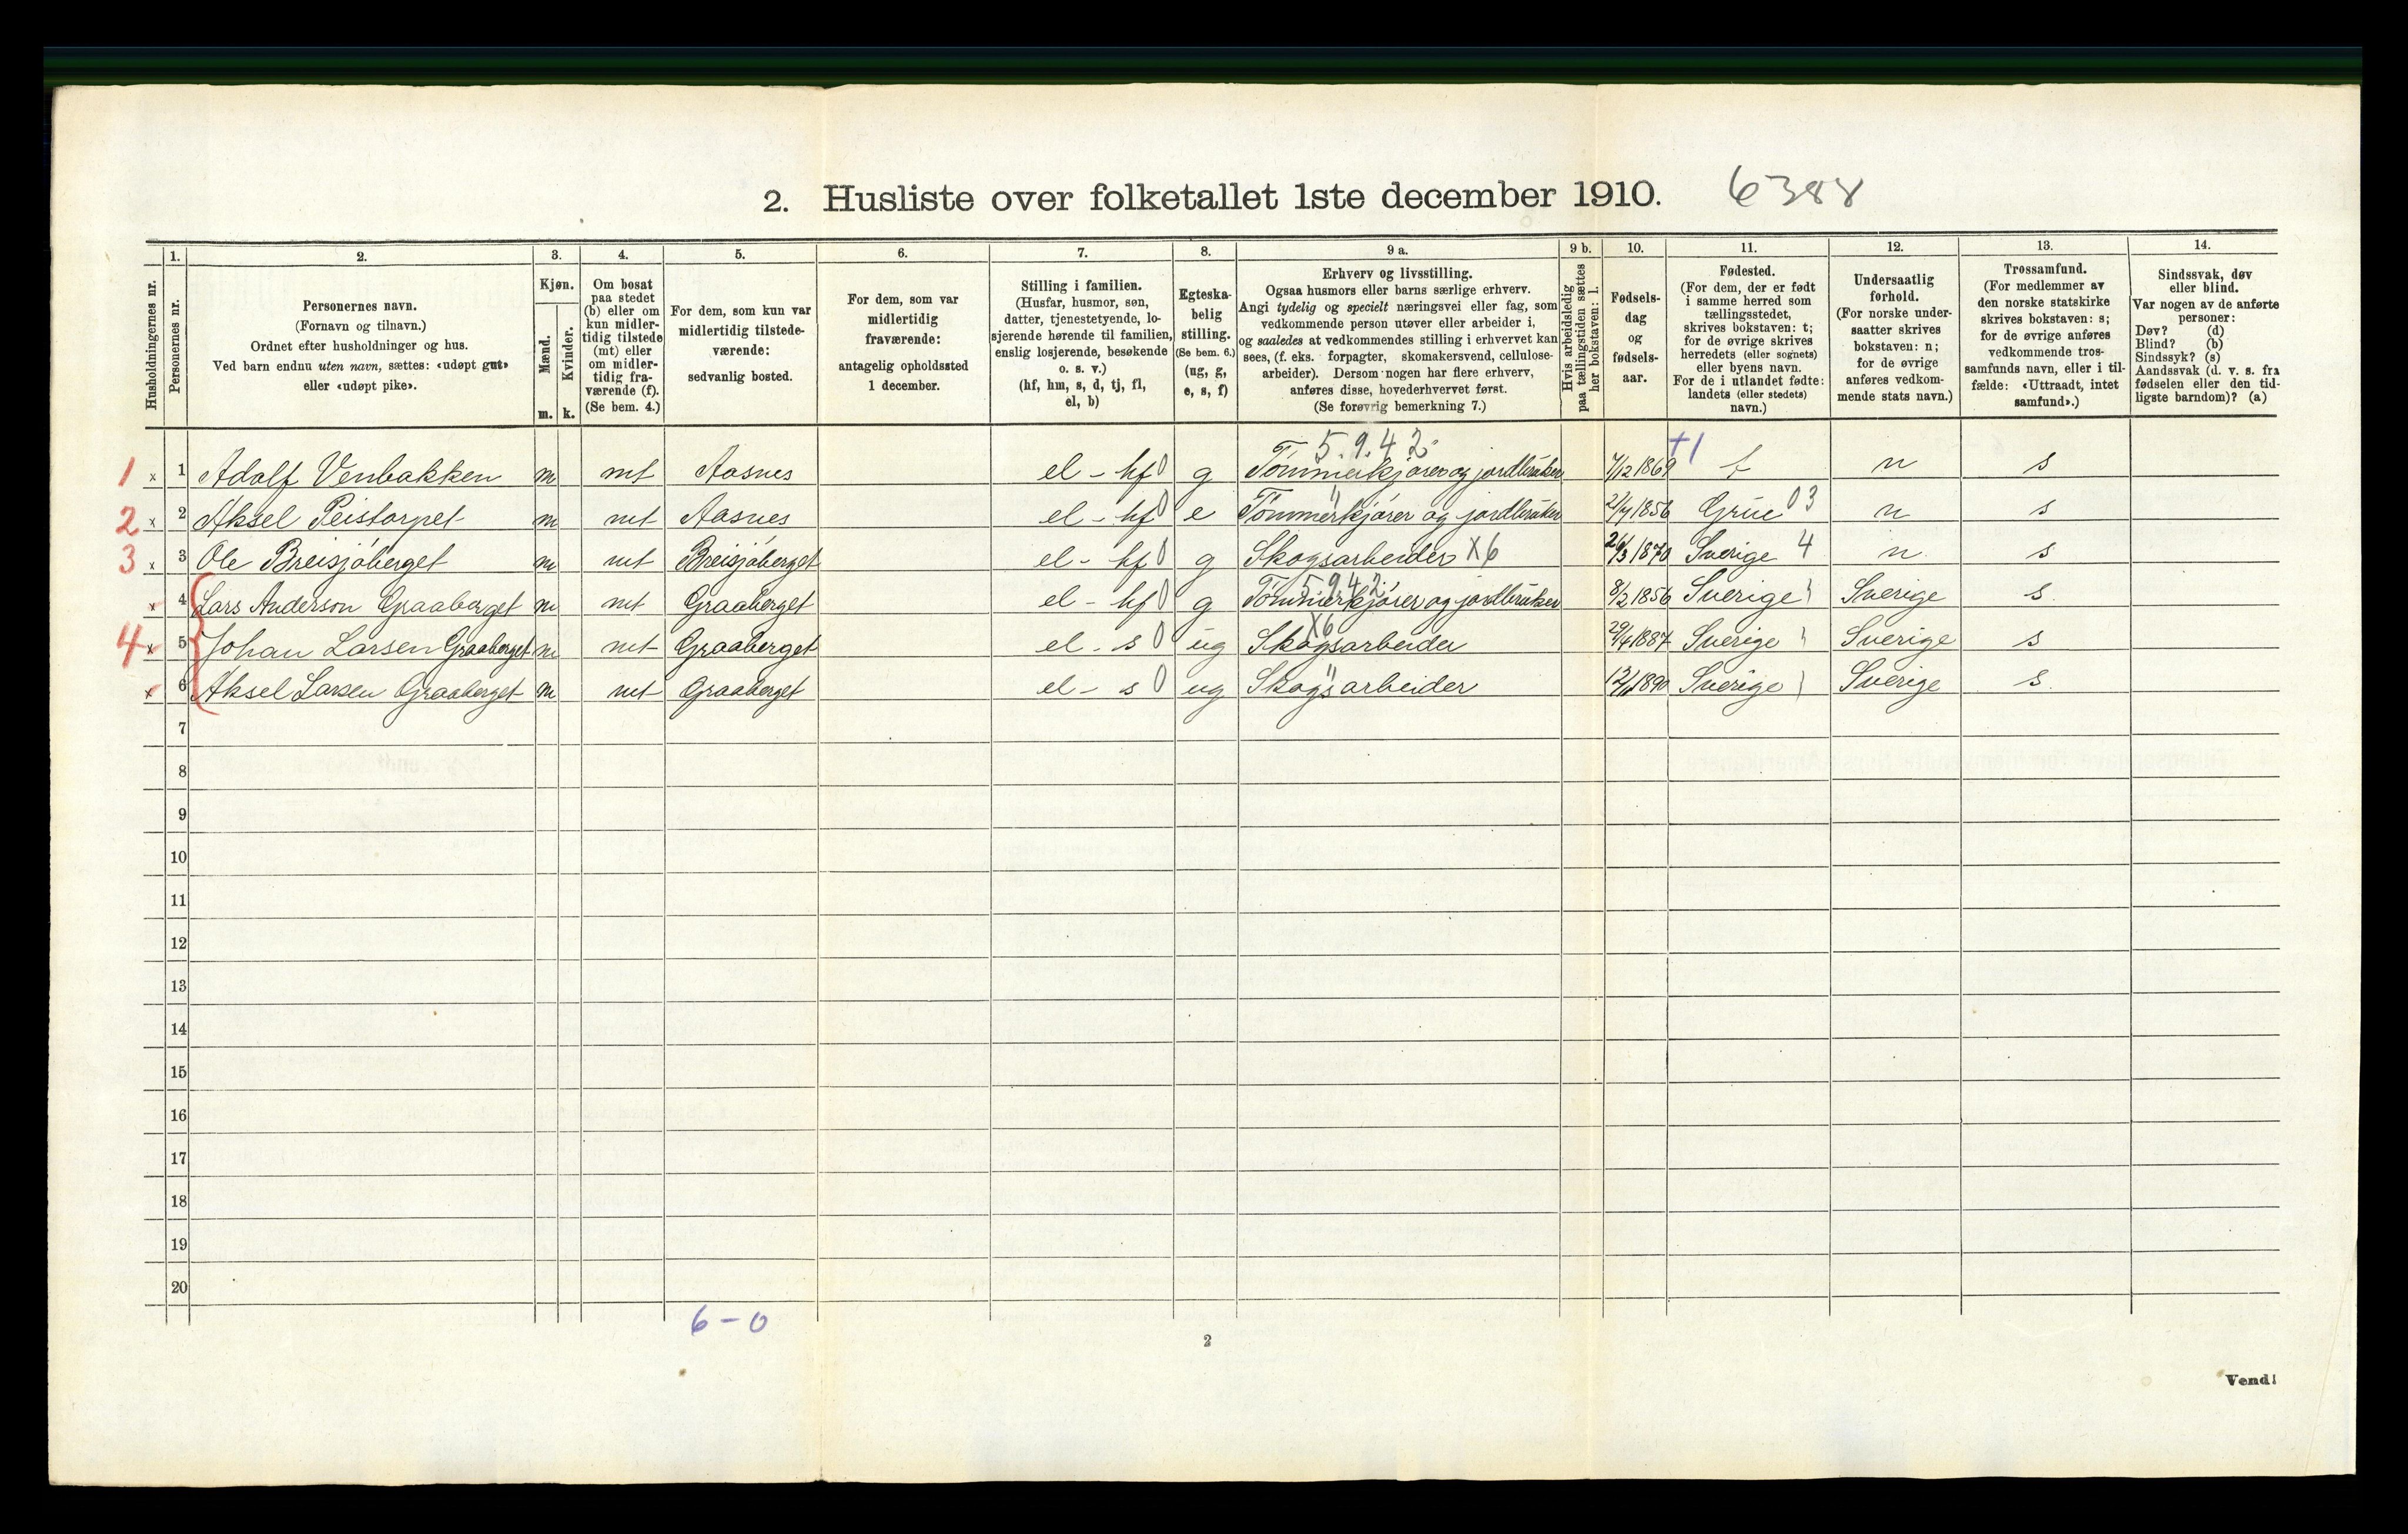 2. Husliste over folketallet 1ste december 1910. 6388
Husholdningernes nr.
1.
Personernes nr.
2.
Personernes navn.
(Fornavn og tilnavn.)
Ordnet efter husholdninger og hus.
Ved barn endnu uten navn, sættes: «udøpt gut»
eller «udøpt pike».
3.
Kjøn.
Mænd.
Kvinder.
m. k.
4.
Om bosat
paa stedet
(b) eller om
kun midler-
tidig tilstede
(mt) eller
om midler-
tidig fra-
værende (f).
(Se bem. 4.)
5.
For dem, som kun var
midlertidig tilstede-
værende:
sedvanlig bosted.
6.
For dem, som var
midlertidig
fraværende:
antagelig opholdssted
1 december.
7.
Stilling i familien.
(Husfar, husmor, søn,
datter, tjenestetyende, lo-
sjerende hørende til familien,
enslig losjerende, besøkende
o. s. v.)
(hf, hm, s, d, tj, fl,
el, b)
8.
Egteska-
belig
stilling.
(Se bem. 6.)
(ug, g,
e, s, f)
9 a.
Erhverv og livsstilling.
Ogsaa husmors eller barns særlige erhverv.
Angi tydelig og specielt næringsvei eller fag, som
vedkommende person utøver eller arbeider i,
og saaledes at vedkommendes stilling i erhvervet kan
sees, (f. eks. forpagter, skomakersvend, cellulose-
arbeider). Dersom nogen har flere erhverv,
anføres disse, hovederhvervet først.
(Se forøvrig bemerkning 7.)
9 b.
Hvis arbeidsledig
paa tællingstiden sættes
her bokstaven: l.
10.
Fødsels-
dag
og
fødsels-
aar.
11.
Fødested.
(For dem, der er født
i samme herred som
tællingsstedet,
skrives bokstaven: t;
for de øvrige skrives
herredets (eller sognets)
eller byens navn.
For de i utlandet fødte:
landets (eller stedets)
navn.)
12.
Undersaatlig
forhold.
(For norske under-
saatter skrives
bokstaven: n;
for de øvrige
anføres vedkom-
mende stats navn.)
13.
Trossamfund.
(For medlemmer av
den norske statskirke
skrives bokstaven: s;
for de øvrige anføres
vedkommende tros-
samfunds navn, eller i til-
fælde: «Uttraadt, intet
samfund».)
14.
Sindssvak, døv
eller blind.
Var nogen av de anførte
personer:
Døv? (d)
Blind? (b)
Sindssyk? (s)
Aandssvak (d. v. s. fra
fødselen eller den tid-
ligste barndom)? (a)
5.9.42 +1
1 x 1 Adolf Venbakken m mt Aasnes el - hf 0 g Tömmerkjörer og jordbruker 7/12 1869 t n s
"
2 x 2 Aksel Peistorpet m mt Aasnes el - hf 0 e Tömmerkjörer og jordbruker 21/4 1856 Grue 03 n s
3 x 3 Ole Breisjöberget m mt Breisjöberget el - hf 0 g Skogsarbeider X6 26/3 1870 Sverige 4 n s
5942
x 4 Lars Anderson Graaberget m mt Graaberget el - hf 0 g Tömmerkjörer og jordbruker 8/2 1856 Sverige Sverige s
X6
4 x 5 Johan Larsen Graaberget m mt Graaberget el - s 0 ug Skogsarbeider 29/4 1887 Sverige Sverige s
"
x 6 Aksel Larsen Graaberget m mt Graaberget el - s 0 ug Skogsarbeider 1890 Sverige Sverige s
7
8
9
10
11
12
13
14
15
16
17
18
19
20
6-0
2
Vend!